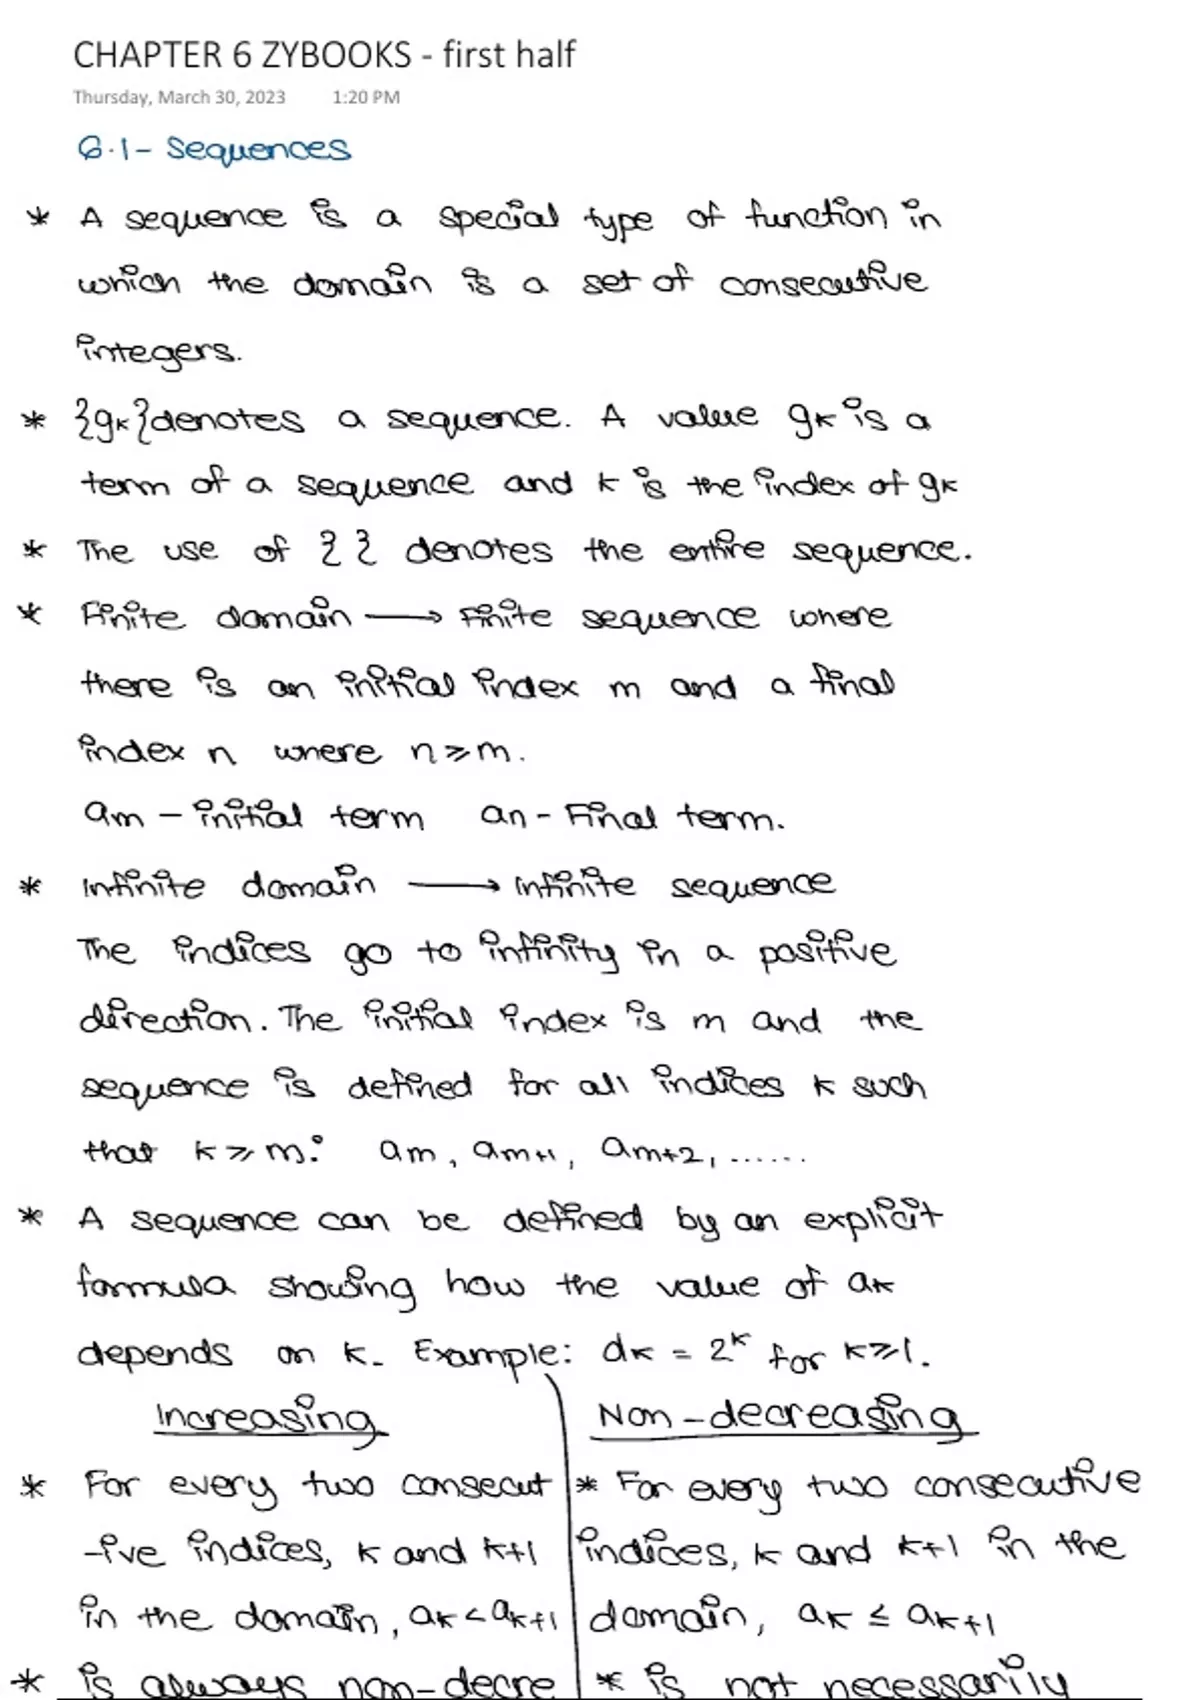 CHAPTER 6 ZYBOOKS - first half
Thursday, March 30, 2023 1:20 PM
6.1 - Sequences
* A sequence is a special type of function in
which the domain is a set of consecutive
integers.
* {gk} denotes a sequence. A value gk is a
term of a sequence and k is the index of gk
* The use of { } denotes the entire sequence.
* Finite domain → Finite sequence where
there is an initial index m and a final
index n where n ≥ m.
am - initial term an - Final term.
* Infinite domain → Infinite sequence
The indices go to infinity in a positive
direction. The initial index is m and the
sequence is defined for all indices k such
that k ≥ m: am, am+1, am+2, ......
* A sequence can be defined by an explicit
formula showing how the value of ak
depends on k. Example: dk = 2^k for k ≥ 1.
Increasing
* For every two consecut
-ive indices, k and k+1
in the domain, ak < ak+1
* is always non-decre
Non-decreasing
* For every two consecutive
indices, k and k+1 in the
domain, ak ≤ ak+1
* is not necessarily